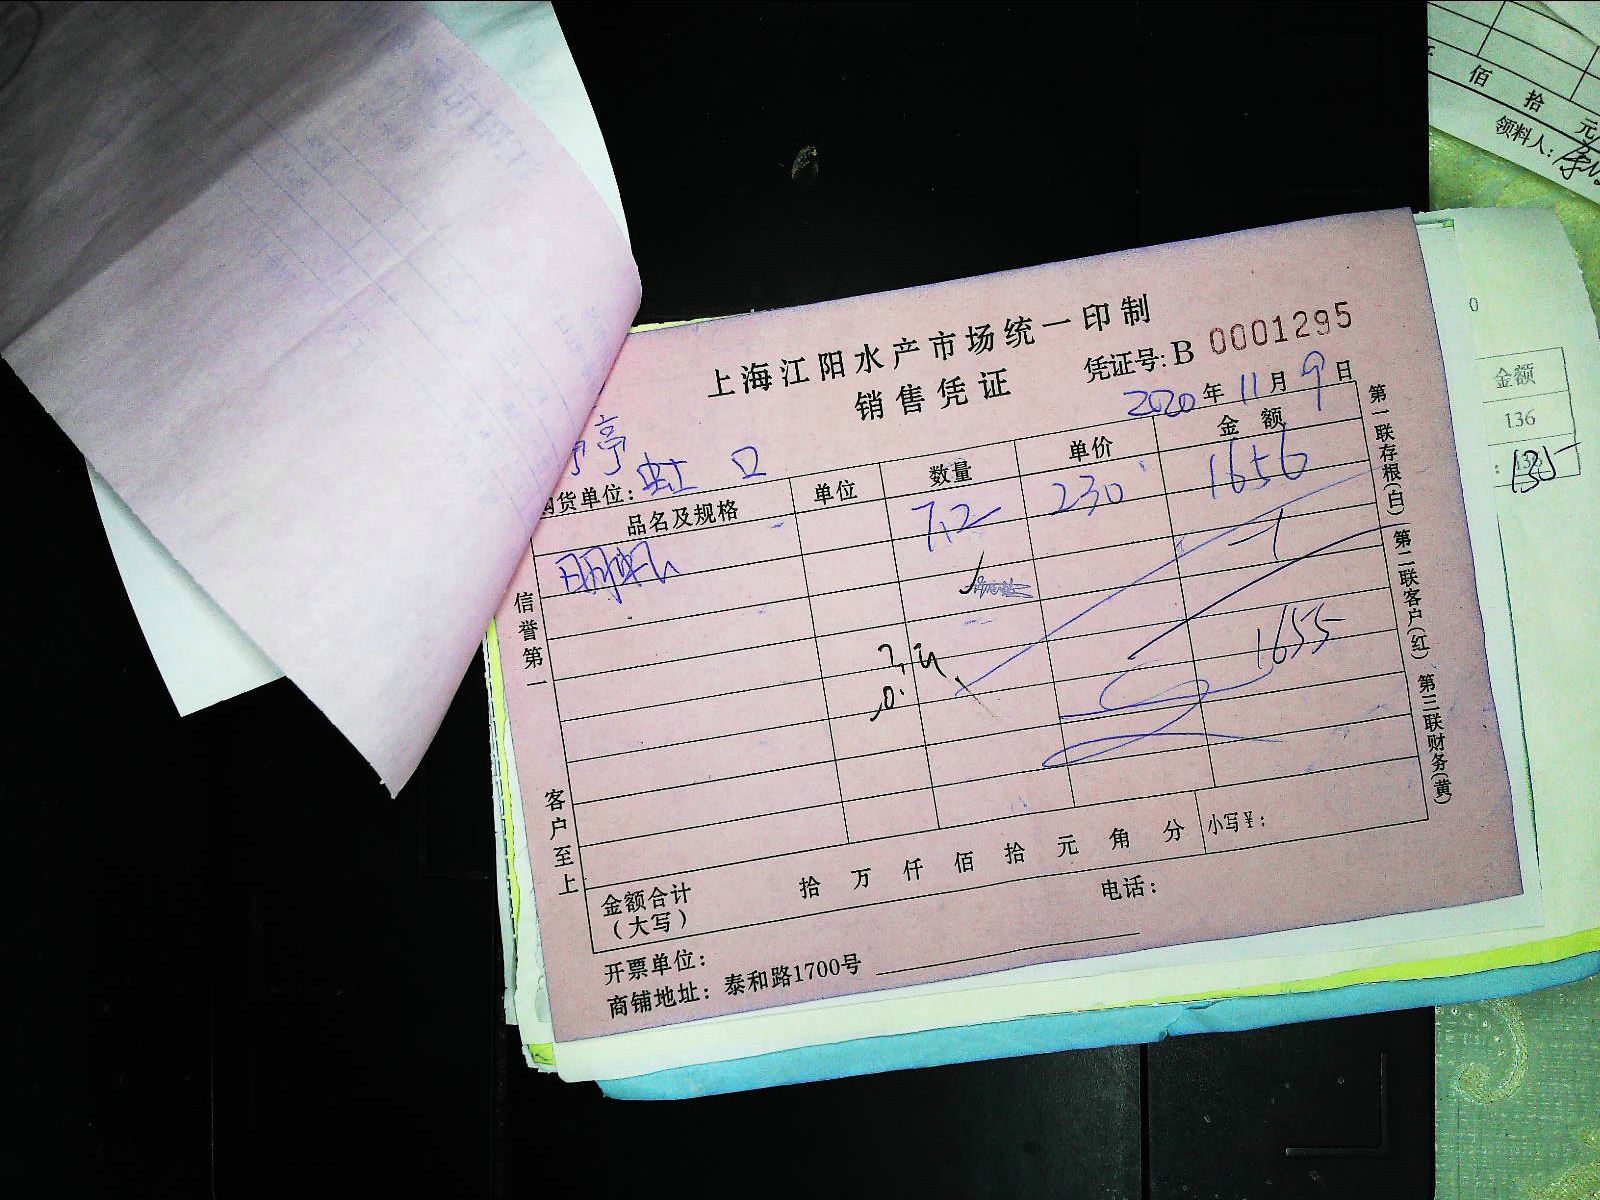 上海江阳水产市场统一印制
销售凭证
凭证号: B 0001295
2020年11月9日
亭
购货单位: 虹口
品名及规格 单位 数量 单价 金额
明虾 7.2 230 1656
-1
1655
金额合计
(大写)
拾 万 仟 佰 拾 元 角 分 小写¥:
开票单位:
电话:
商铺地址: 泰和路1700号
信誉第一
客户至上
第一联存根(白) 第二联客户(红) 第三联财务(黄)
佰 拾 元
领料人:
0
金额
136
135